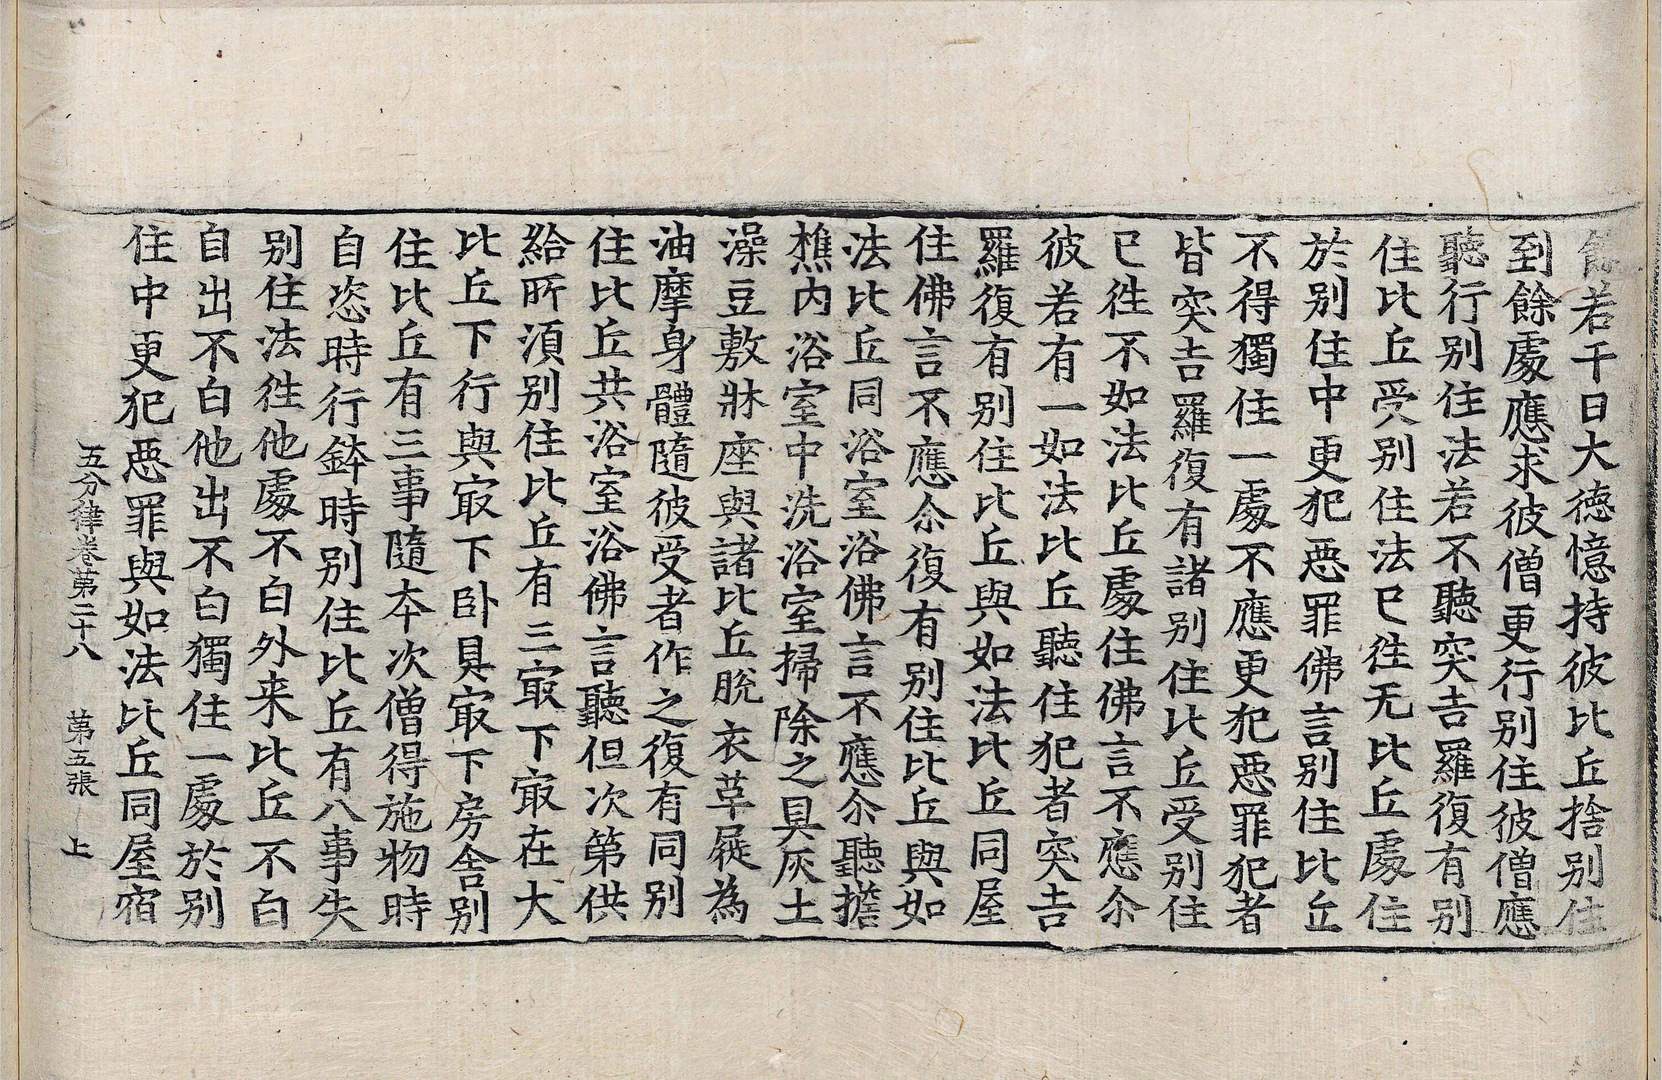 餘若干日大德憶持彼比丘捨別住
到餘處應求彼僧更行別住彼僧應
聽行別住法若不聽突吉羅復有別
住比丘受別住法已徃无比丘處住
於別住中更犯惡罪佛言別住比丘
不得獨住一處不應更犯惡罪犯者
皆突吉羅復有諸別住比丘受別住
已徃不如法比丘處住佛言不應尒
彼若有一如法比丘聽住犯者突吉
羅復有別住比丘與如法比丘同屋
住佛言不應尒復有別住比丘與如
法比丘同浴室浴佛言不應尒聽擔
樵內浴室中洗浴室掃除之具灰土
澡豆敷牀座與諸比丘脫衣草屣為
油摩身體隨彼受者作之復有同別
住比丘共浴室浴佛言聽但次第供
給所須別住比丘有三㝡下㝡在大
比丘下行與㝡下卧具㝡下房舍別
住比丘有三事隨夲次僧得施物時
自恣時行鉢時別住比丘有八事失
別住法徃他處不白外来比丘不白
自出不白他出不白獨住一處於別
住中更犯惡罪與如法比丘同屋宿
五分律卷第二十八　第五張　上